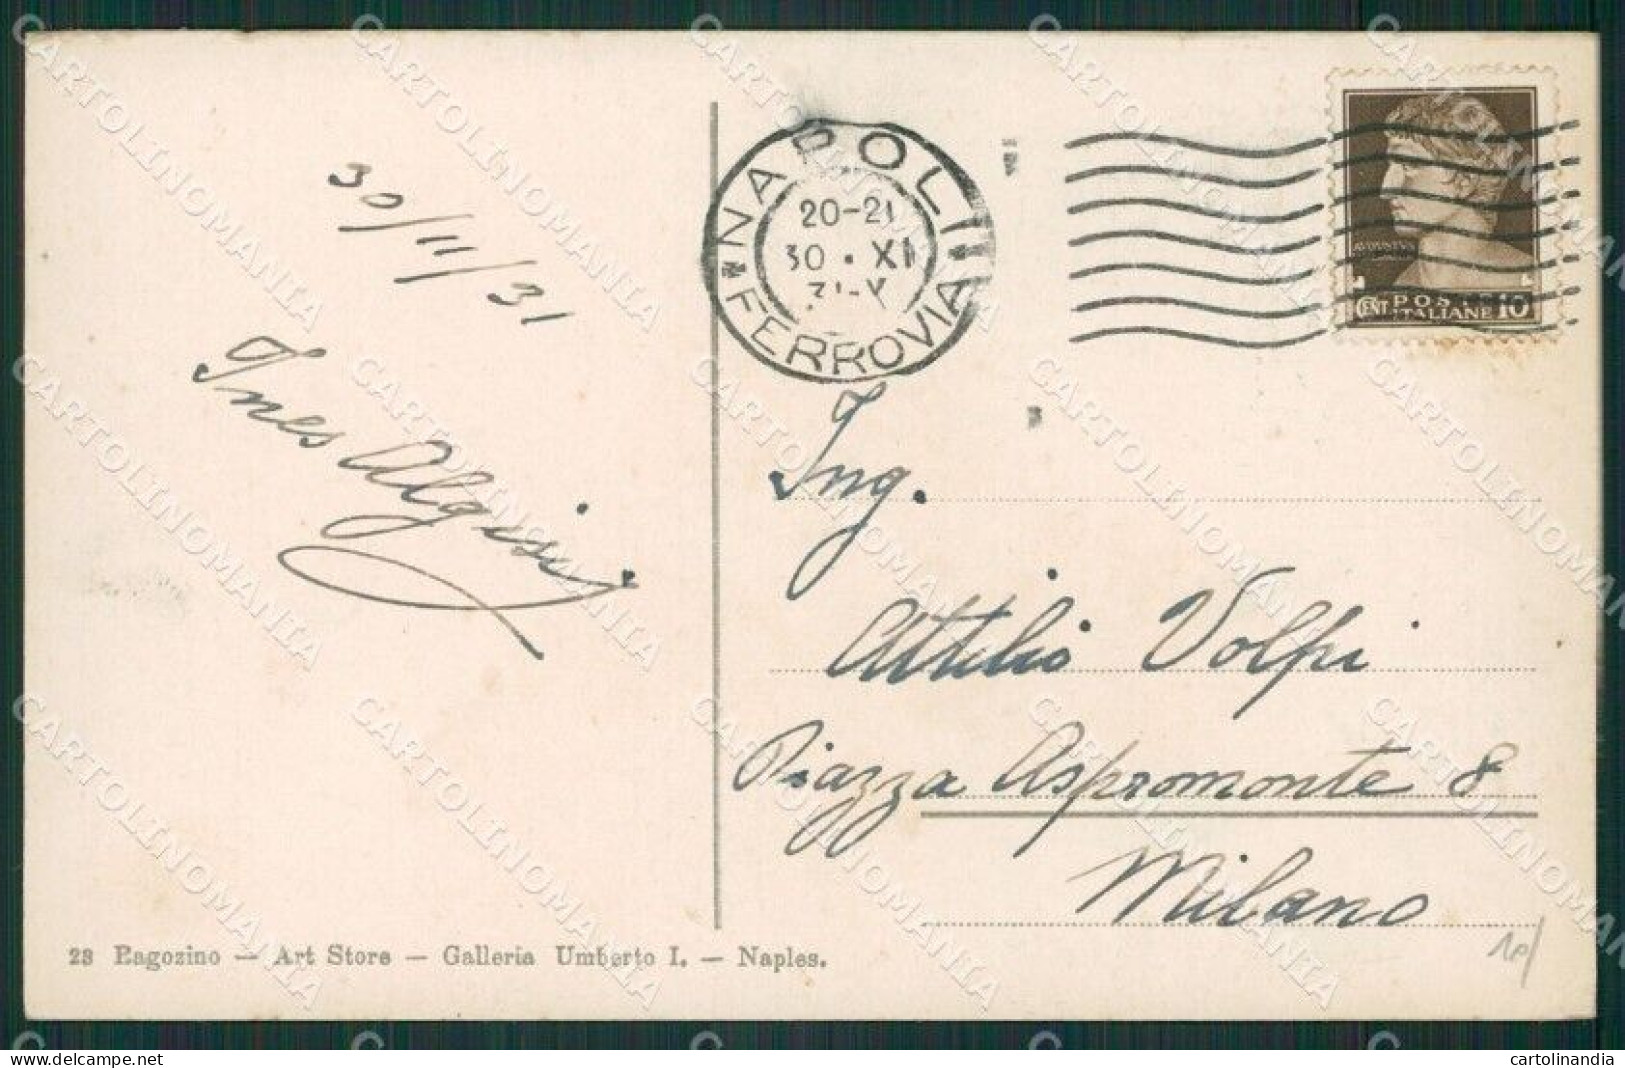 30/11/31
Ines Algisi
NAPOLI
20-21
30 · XI
31-X
FERROVIA
POSTE
ITALIANE
CENT 10
Ing.
Attilio Volpi
Piazza Aspromonte 8
Milano
23 Ragozino — Art Store — Galleria Umberto I. — Naples.
CARTOLINOMANIA
cartolinandia